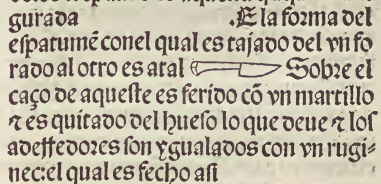 gurada .E la forma del
espatumẽ conel qual es tajado del vn fo
rado al otro es atal Sobre el
caço de aqueste es ferido cõ vn martillo
⁊ es quitado del hueso lo que deue ⁊ los
adeſſedores son ygualados con vn rugi-
nec:el qual es fecho asi